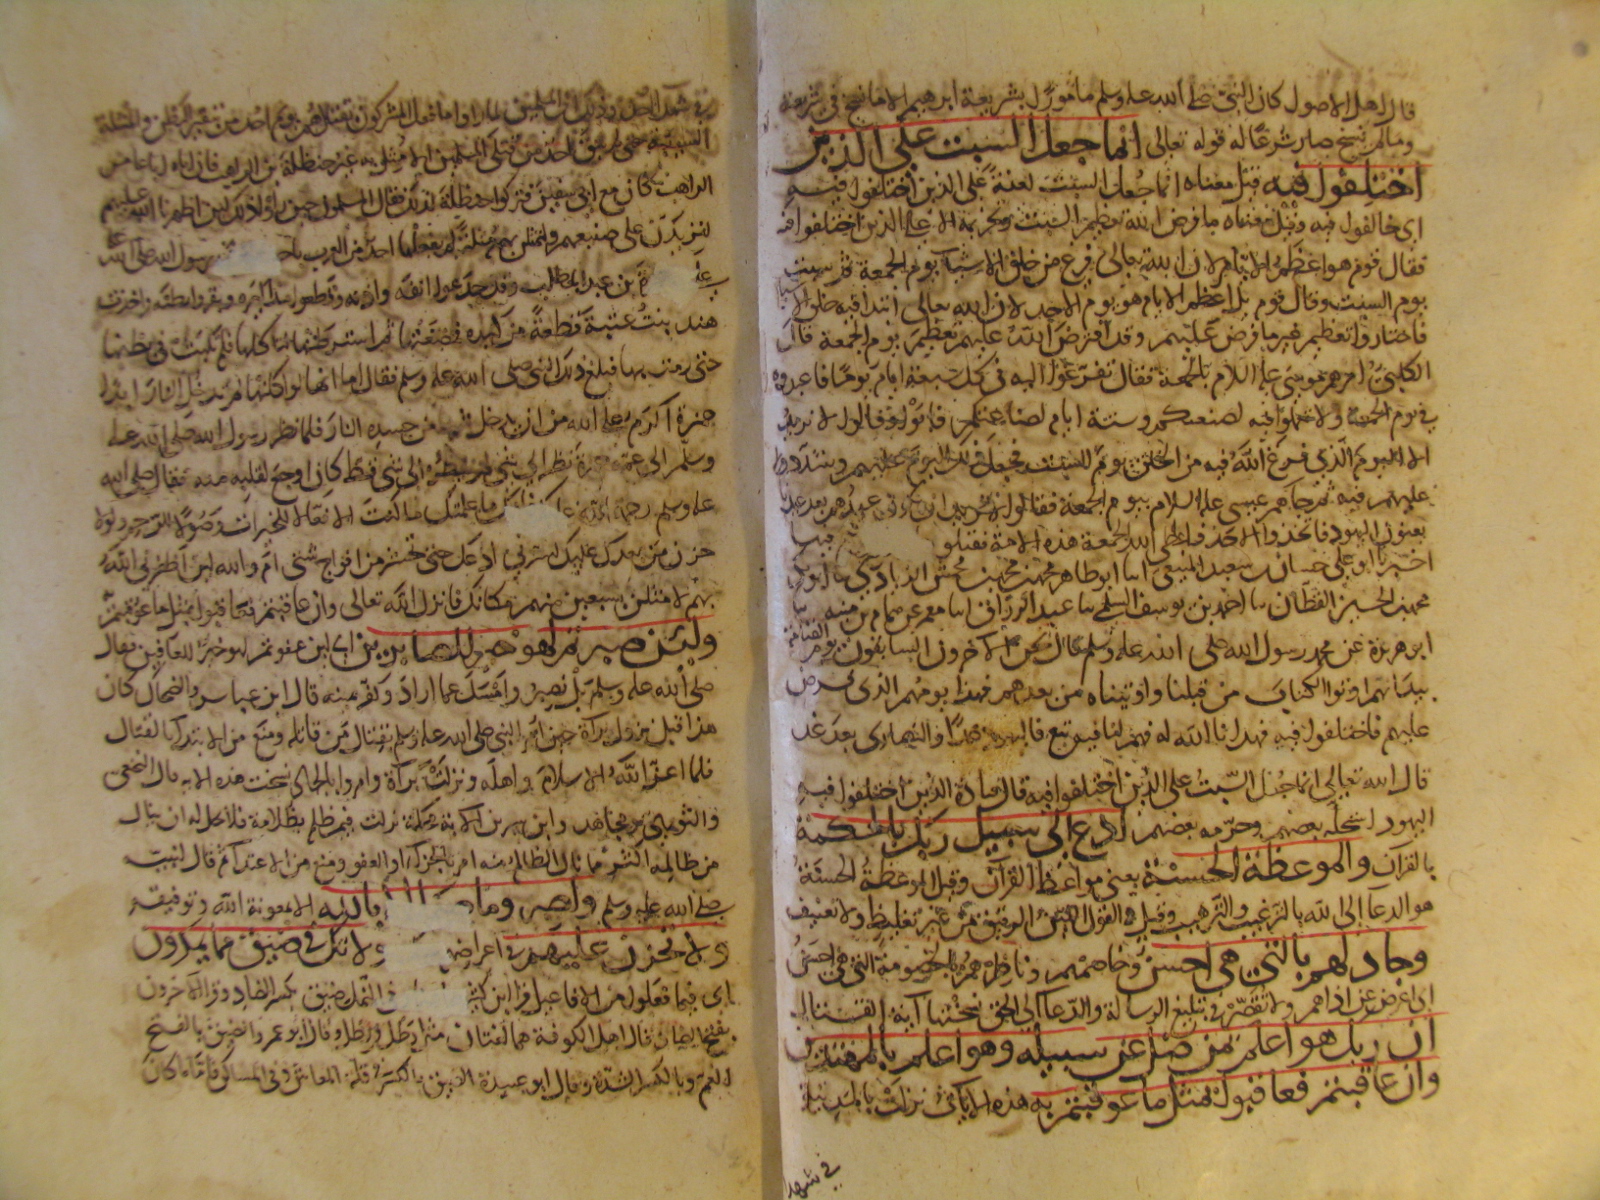 قال اهل الاصول كان النبي صلى الله عليه وسلم مامورا بشريعة ابرهيم الا ما نسخ في شريعته
وما لم ينسخ صار شرعا له قوله تعالى انما جعل السبت على الذين
اختلفوا فيه قيل معناه انما جعل السبت لعنة على الذين اختلفوا فيه
اي خالفوا فيه وقيل معناه ما فرض الله تعظيم السبت وتحريمه الا على الذين اختلفوا فيه
فقال قوم هو اعظم الايام لان الله تعالى فرغ من خلق الاشياء يوم الجمعة ثم سبت
يوم السبت وقال قوم بل اعظم الايام هو يوم الاحد لان الله تعالى ابتدا فيه خلق الاشيا
فاختاروا تعظيم غير ما فرض عليهم وقد افترض الله عليهم تعظيم يوم الجمعة قال
الكلبي امرهم موسى عليه السلام بالجمعة فقال تفرغوا لله في كل سبعة ايام يوما فاعبدوه
في يوم الجمعة ولا تعملوا فيه لصنعتكم وستة ايام لصناعتكم فابوا وقالوا لا نريد
الا اليوم الذي فرغ الله فيه من الخلق يوم السبت فجعل ذلك اليوم عليهم وشدد
عليهم فيه ثم جاءهم عيسى عليه السلام بيوم الجمعة فقالوا لا نريد ان يكون عيدهم بعد عيدنا
يعنون اليهود فاتخذوا الاحد فاعطى الله الجمعة هذه الامة فقبلو
اخبرنا ابو علي حسان بن سعيد المنيعي انا ابو طاهر محمد بن محمد بن محمش الزيادي نا ابو بكر
محمد بن الحسين القطان نا احمد بن يوسف السلمي نا عبد الرزاق انا معمر عن همام بن منبه نا
ابو هريرة عن محمد رسول الله صلى الله عليه وسلم قال نحن الاخرون السابقون يوم القيامة
بيد انهم اوتوا الكتاب من قبلنا واوتيناه من بعدهم فهذا يومهم الذي فرض
عليهم فاختلفوا فيه فهدانا الله له فهم لنا فيه تبع فاليهود غدا والنصارى بعد غد
قال الله تعالى انما جعل السبت على الذين اختلفوا فيه قال قتادة الذين اختلفوا فيه
اليهود استحله بعضهم وحرمه بعضهم ادع الى سبيل ربك بالحكمة
بالقران والموعظة الحسنة يعني مواعظ القران وقيل الموعظة الحسنة
هو الدعا الى الله بالترغيب والترهيب وقيل هو القول اللين الرقيق من غير تغليظ ولا تعنيف
وجادلهم بالتي هي احسن وخاصمهم وناظرهم بالخصومة التي هي احسن
اي اعرض عن اذاهم ولا تقصر في تبليغ الرسالة والدعا الى الحق نسختها اية القتال
ان ربك هو اعلم بمن ضل عن سبيله وهو اعلم بالمهتدين
وان عاقبتم فعاقبوا بمثل ما عوقبتم به هذه الايات نزلت بالمدينة
في شهدا
في شهدا احد وذلك ان المسلمين لما راوا ما فعل المشركون بقتلاهم يوم احد من تبقير البطن والمثلة
السيئة حتى لم يبق احد من قتلى المسلمين الا مثل به غير حنظلة بن الراهب فان اباه ابا عامر
الراهب كان مع ابي سفين فتركوا حنظلة لذلك فقال المسلمون حين راوا ذلك لئن اظهرنا الله عليهم
لنزيدن على صنيعهم ولنمثلن بهم مثلة لم يفعلها احد من العرب باحد رسول الله صلى الله
عليه بن عبد المطلب وقد جدعوا انفه واذنه وقطعوا مذاكيره وبقروا بطنه واخذت
هند بنت عتبة قطعة من كبده فمضغتها ثم استرطتها لتاكلها فلم تلبث في بطنها
حتى رمت بها فبلغ ذلك النبي صلى الله عليه وسلم فقال اما انها لو اكلتها لم تدخل النار ابدا
حمزة اكرم على الله من ان يدخل شيء من جسده النار فلما نظر رسول الله صلى الله عليه
وسلم الى عمه حمزة نظر الى شي لم ينظر الى شي قط كان اوجع لقلبه منه فقال صلى الله
عليه وسلم رحمة الله ما علمتك ما كنت الا فعالا للخيرات وصولا للرحم ولولا
حزن من بعدك عليك لسرني ان ادعك حتى تحشر من افواج شتى ام والله لئن اظفرني الله
بهم لامثلن بسبعين منهم مكانك فانزل الله تعالى وان عاقبتم فعاقبوا بمثل ما عوقبتم به
ولئن صبرتم لهو خير للصابرين اي لئن عفوتم لهو خير للعافين فقال
صلى الله عليه وسلم بل نصبر وامسك عما اراد وكفر يمينه قال ابن عباس والضحاك كان
هذا قبل نزول براة حين امر النبي صلى الله عليه وسلم بقتال من قاتله ومنع من الابتدا بالقتال
فلما اعز الله الاسلام واهله ونزلت براة وامروا بالجهاد نسخت هذه الاية قال النخعي
والثوري ومجاهد وابن سيرين الاية محكمة نزلت فيمن ظلم بظلامة فلا يحل له ان ينال
من ظالمه اكثر مما نال الظالم منه امر بالجزاء او العفو ومنع من الاعتدا ثم قال لنبيه
صلى الله عليه وسلم واصبر وما بالله الا بمعونة الله وتوفيقه
ولا تحزن عليهم في اعراضهم ولا تك في ضيق مما يمكرون
اي فيما فعلوا من الافاعيل قرا ابن كثير النمل ضيق بكسر الضاد وقرا الاخرون
بفتح الضاد قال اهل الكوفة هما لغتان مثل رطل ورطل وقال ابو عمرو الضيق بالفتح
الغم وبالكسر الشدة وقال ابو عبيدة الضيق بالكسر في قلة المعاش وفي المساكن فاما ما كان